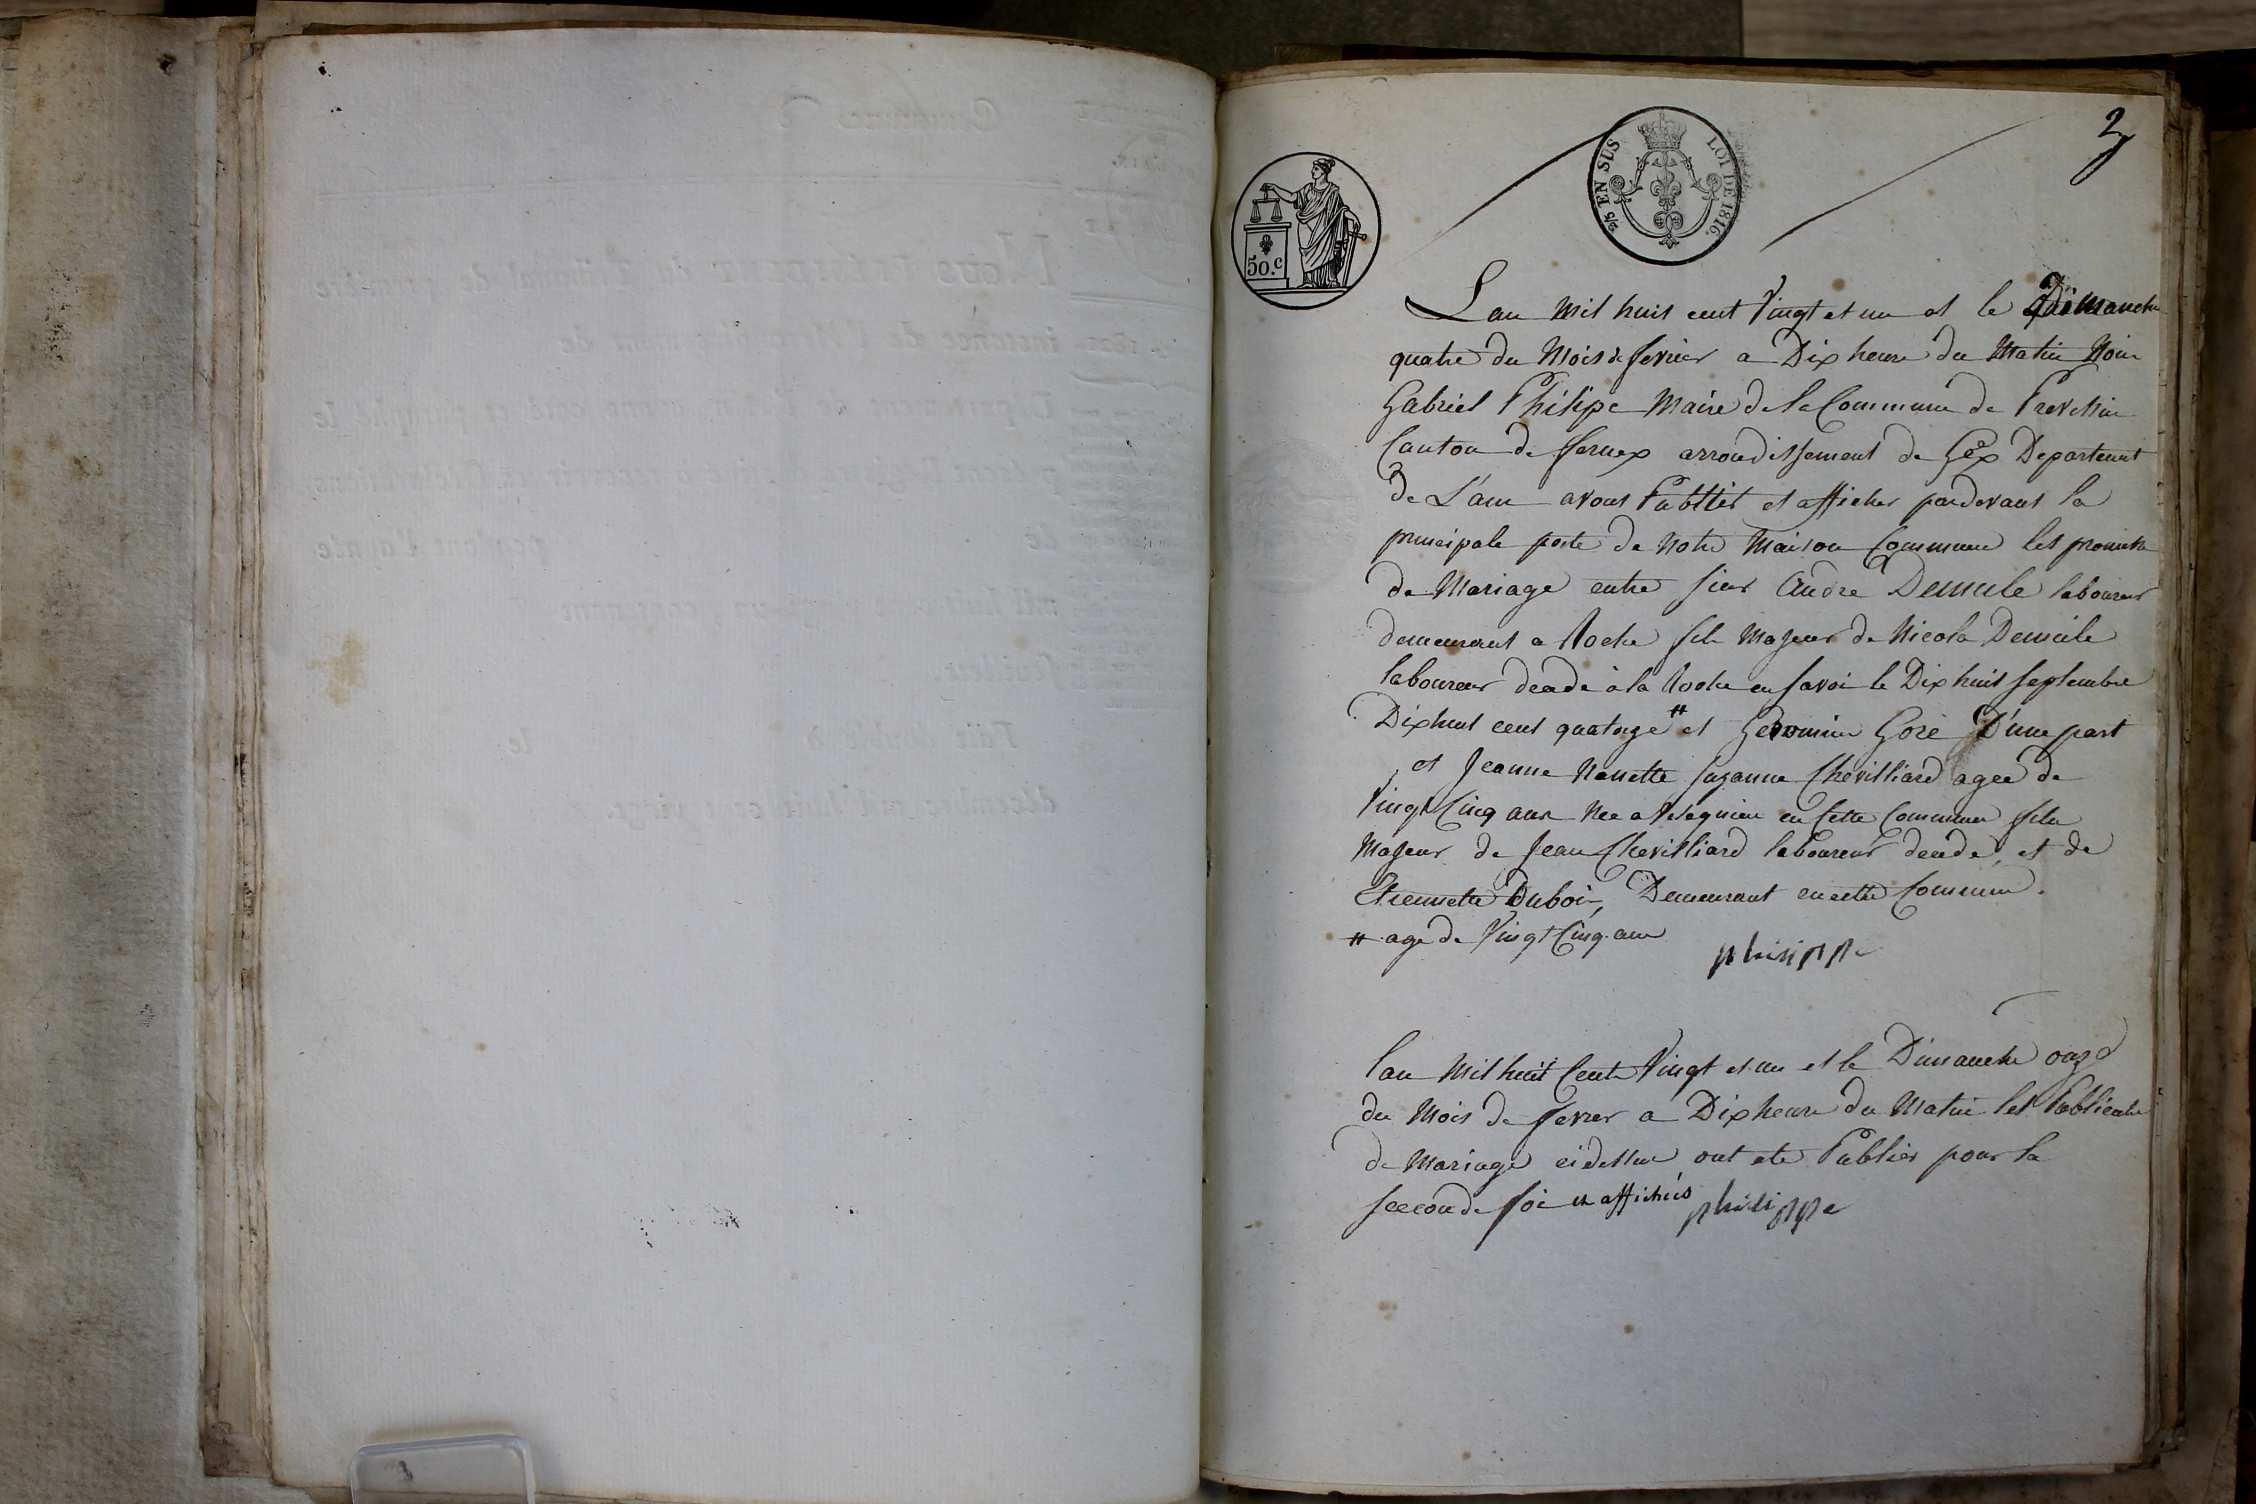 2
2/5 EN SUS
LOI DE 1816.
50.c
Lan mil huit cent Vingt et un et le Dimanche
quatre du Mois de fevrier a Dix heure du Matin Nous
Gabriel Philipe Maire de la Commune de Prevessin
Canton de fernex arrondissement de Gex Departemt
de L'ain avons Publiér et afficher pardevant la
principale porte de notre Maison Commune les promesse
de Mariage entre sieur andre Demule laboureur
demeurant a Roche fils Majeur de Nicola Demule
laboureur decede à la Roche en savoi le Dix huit septembre
Dixhuit cent quatorze # et Gore D'une part
et Jeanne Nanette suzanne Chevilliard agee de
Vingt Cinq ans Nee a Vésegnien en Cette Commune fille
Majeur de Jean Chevilliard laboureur decede, et de
Etiennette Dubois, Demeurant en cette Commune.
# age de Vingt Cinq ans
philippe
lan Mil huit Cent Vingt et un et le Dimanche onze
du Mois de fevrier a Dix heure du Matin les
de Mariage cidessus ont ete Publier pour la
seconde foi et affichés philippe
3